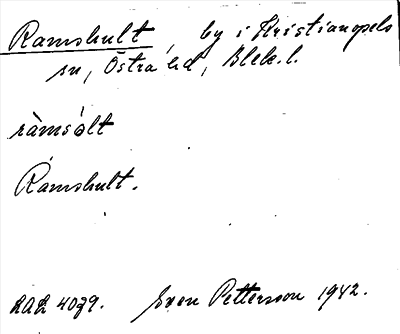 Ramshult, by i Kristianopels
sn, Östra hd, Blek. l.
ràmsølt
Rámshult.
LAL 4079. Sven Pettersson 1942.